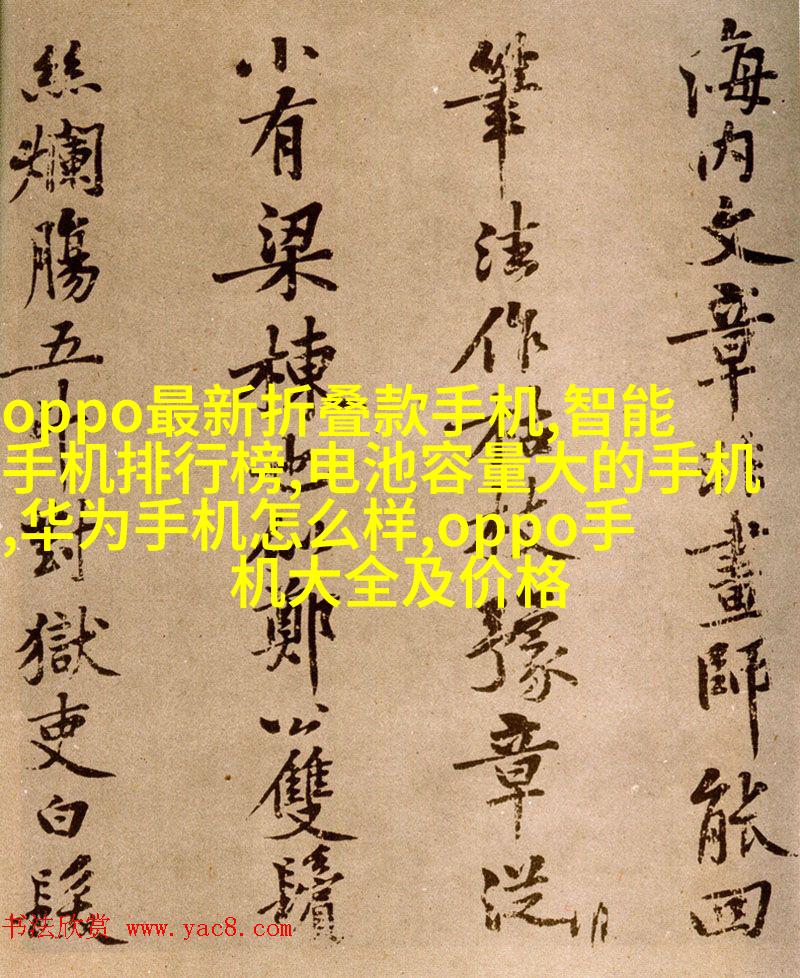 海内文章非畫師能回
筆法作枯枝豫章從
小有梁棟也似鄭公雙鬢
絲爛腸五斗對獄吏白髮
oppo最新折叠款手机,智能
手机排行榜,电池容量大的手机
,华为手机怎么样,oppo手
机大全及价格
书法欣赏 www.yac8.com